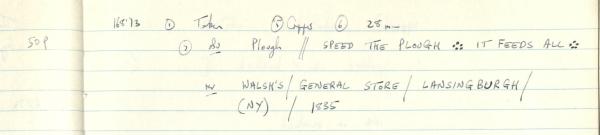 168'73 ① Token ⑤ Copper ⑥ 28 mm
50p ⑦ Ov Plough // SPEED THE PLOUGH ⁘ IT FEEDS ALL ⁘
Rv WALSH'S / GENERAL STORE / LANSINGBURGH /
(NY) / 1835